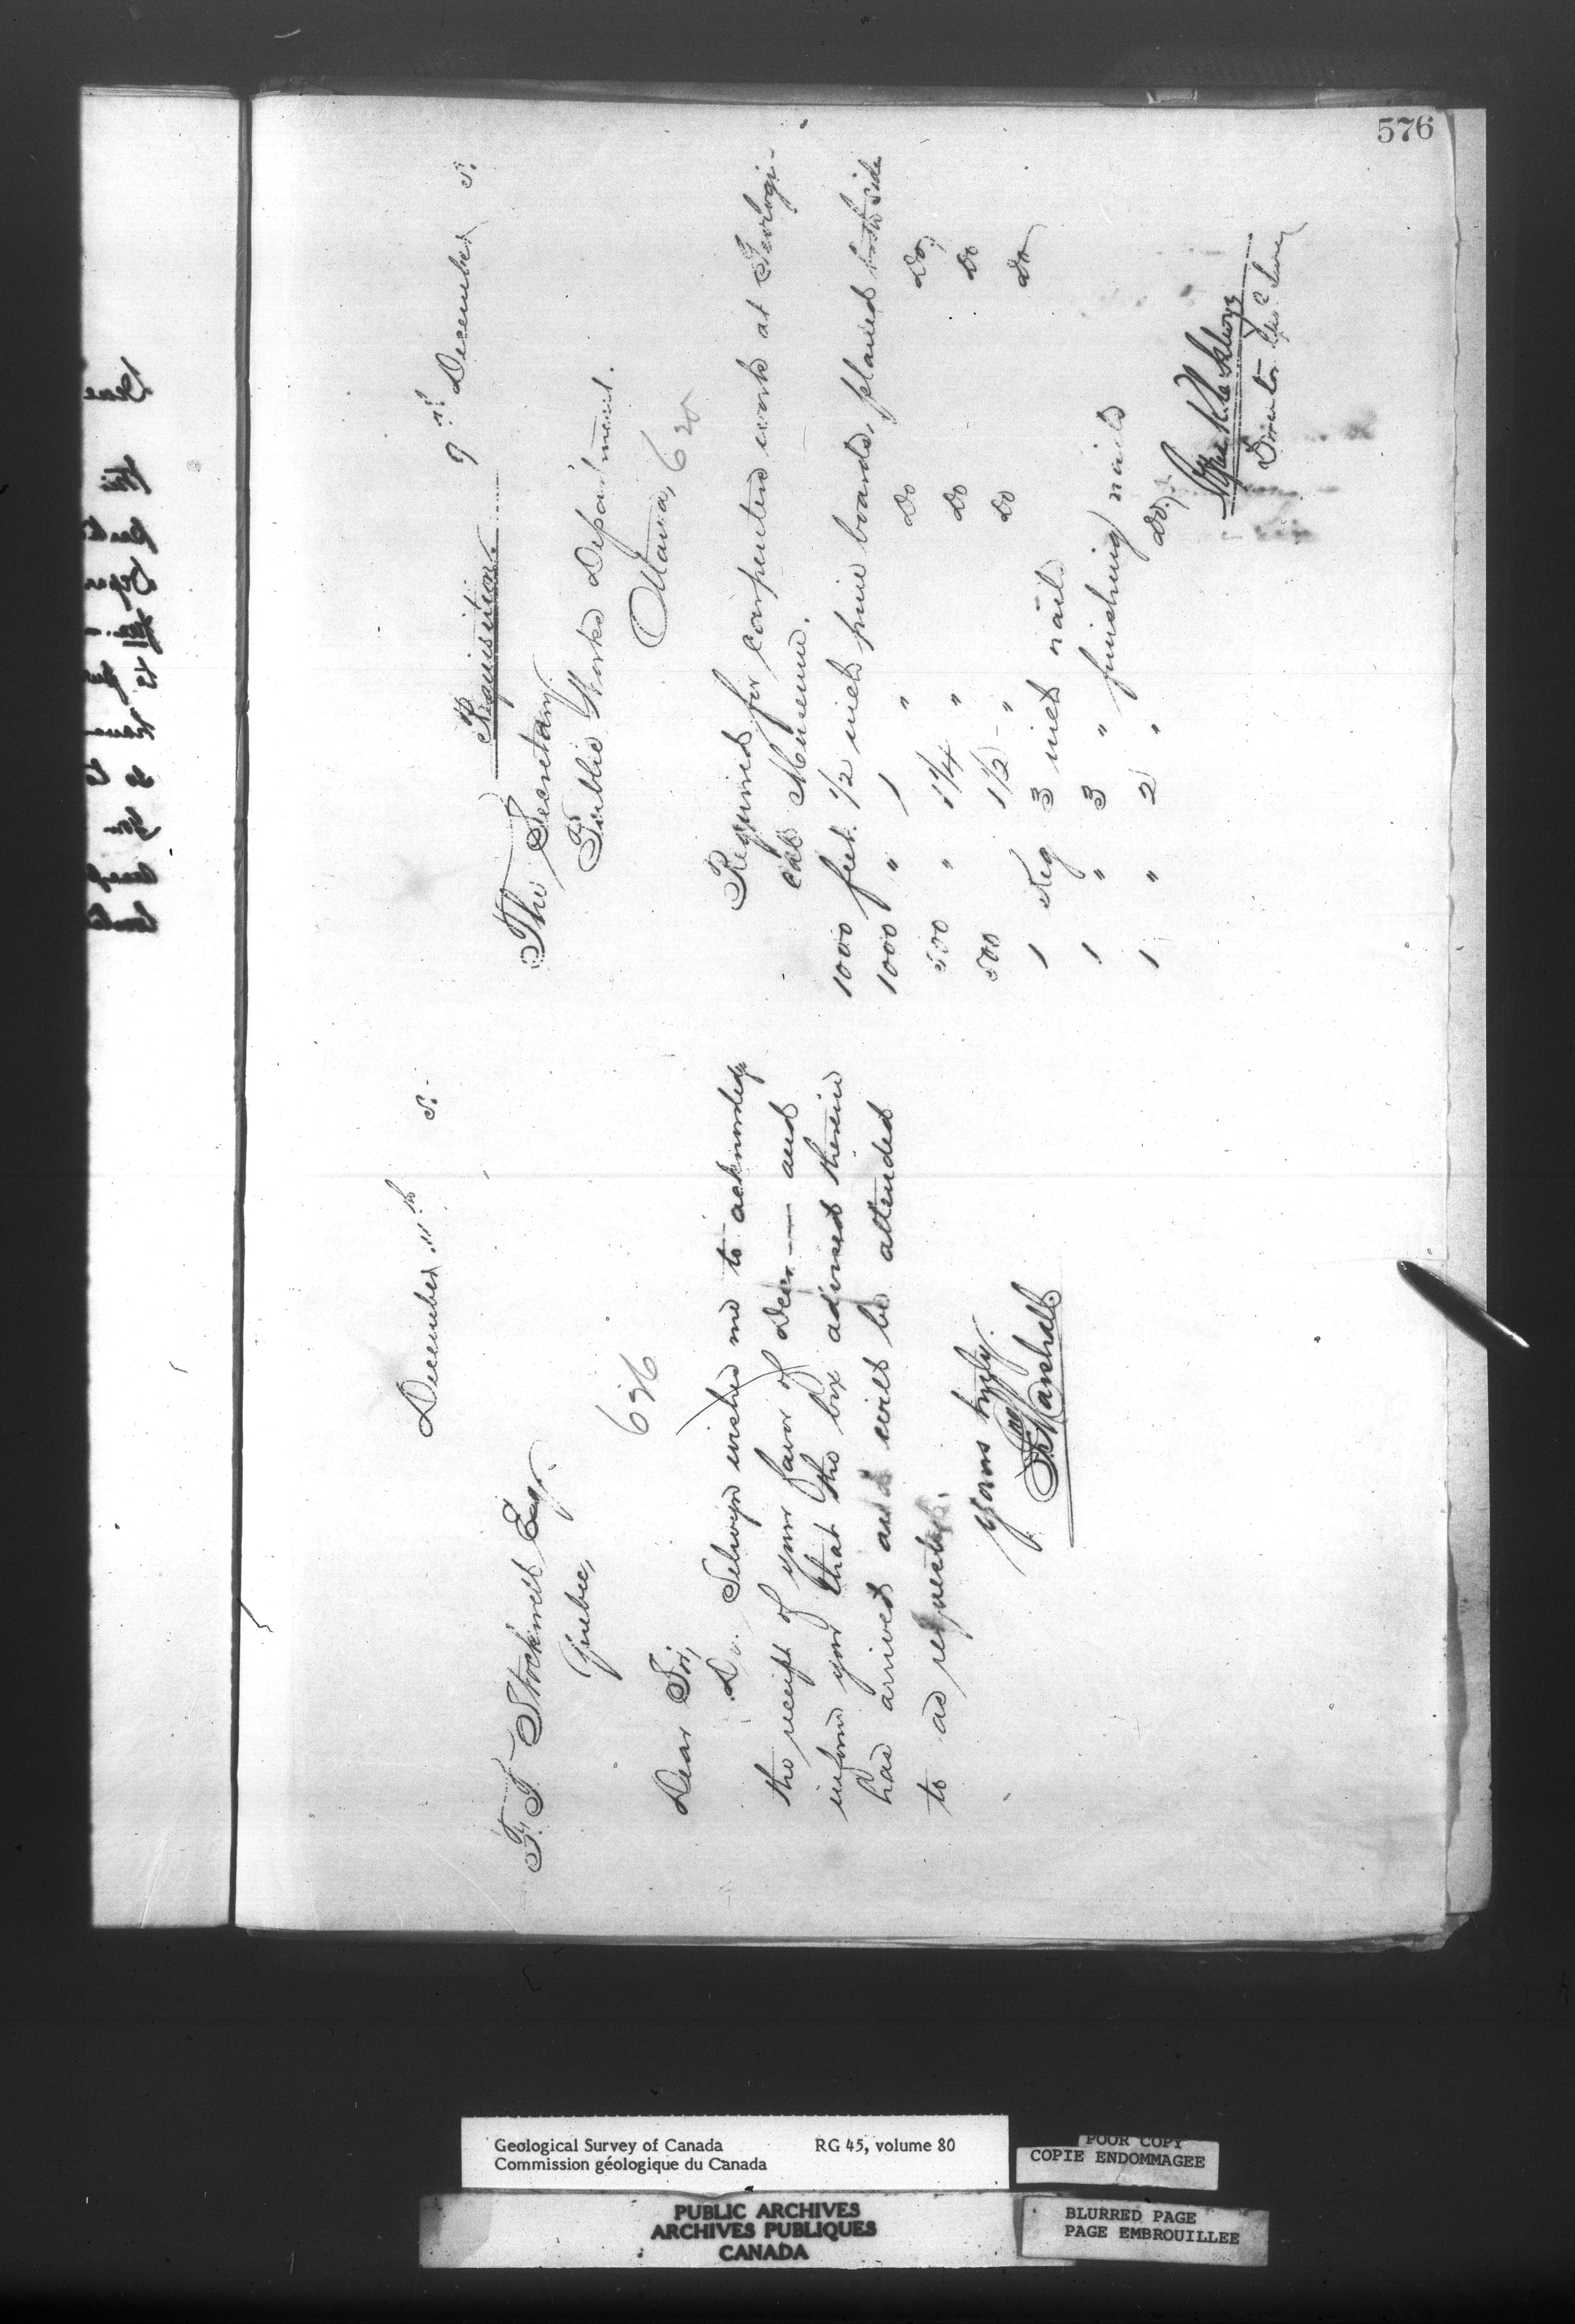 576
December 11th 5.
F. T. Stockwell Esq.
Quebec,
626
Dear Sir,
Dr. Selwyn wishes me to acknowledge
the receipt of your favor of Decr. — and
inform you that the box advised therein
has arrived and will be attended
to as requested.
Yours truly
Marshall
Requisition 7th December 5.
The Secretary
Public Works Department.
Ottawa,
Required for carpenters work at Geologi-
cal Museum.
1000 feet 1/2 inch pine boards, planed both side
1000 " 1 " Do Do
500 " 1 1/4 " Do Do
500 1 1/2 " Do Do
1 Keg 3 inch nails
1 " 3 " finishing nails
1 " 2 " Do.
Director
Geological Survey of Canada RG 45, volume 80
Commission géologique du Canada
POOR COPY
COPIE ENDOMMAGEE
PUBLIC ARCHIVES
ARCHIVES PUBLIQUES
CANADA
BLURRED PAGE
PAGE EMBROUILLEE